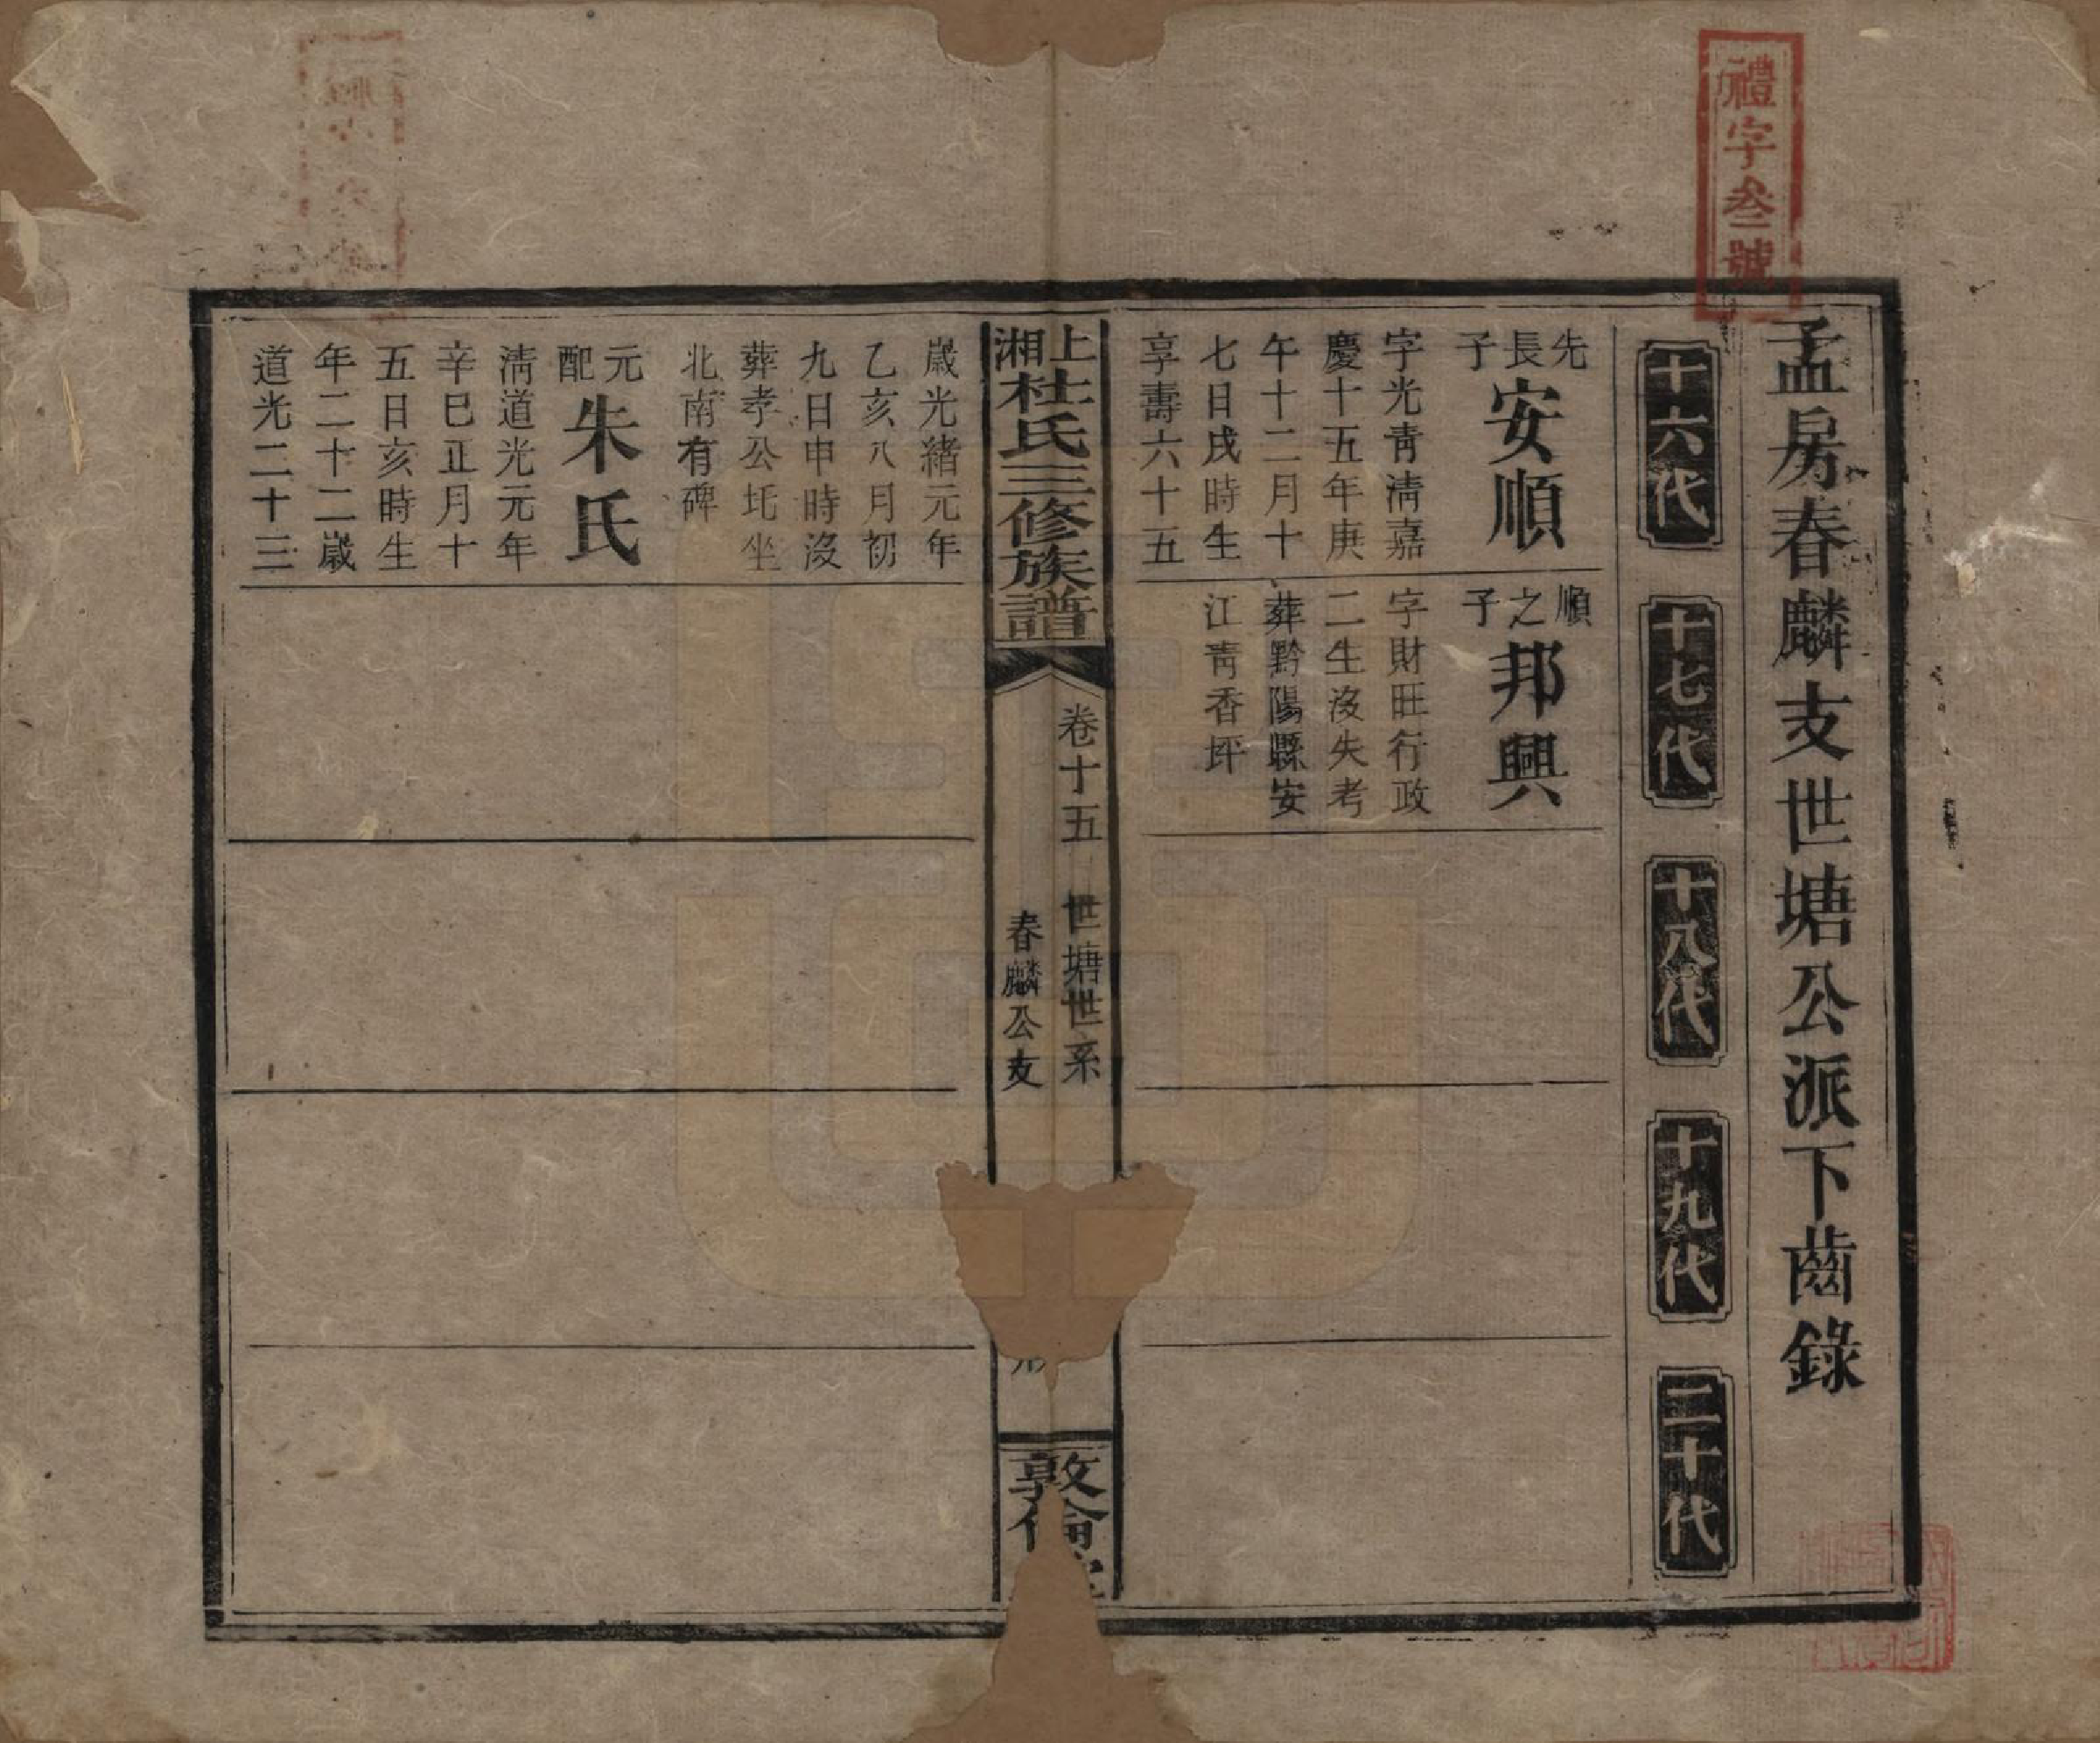 禮字叁號
孟房春麟支世塘公派下齒錄
十六代
十七代
十八代
十九代
二十代
先長子
安順
字光青清嘉
慶十五年庚
午十二月十
七日戌時生
享壽六十五
順之子
邦興
字財旺行政
二生沒失考
葬黔陽縣安
江青香坪
上湘杜氏三修族譜
卷十五
世塘世系
春麟公支
敦倫
歲光緒元年
乙亥八月初
九日申時沒
葬孝公圫坐
北南有碑
元配
朱氏
清道光元年
辛巳正月十
五日亥時生
年二十二歲
道光二十三